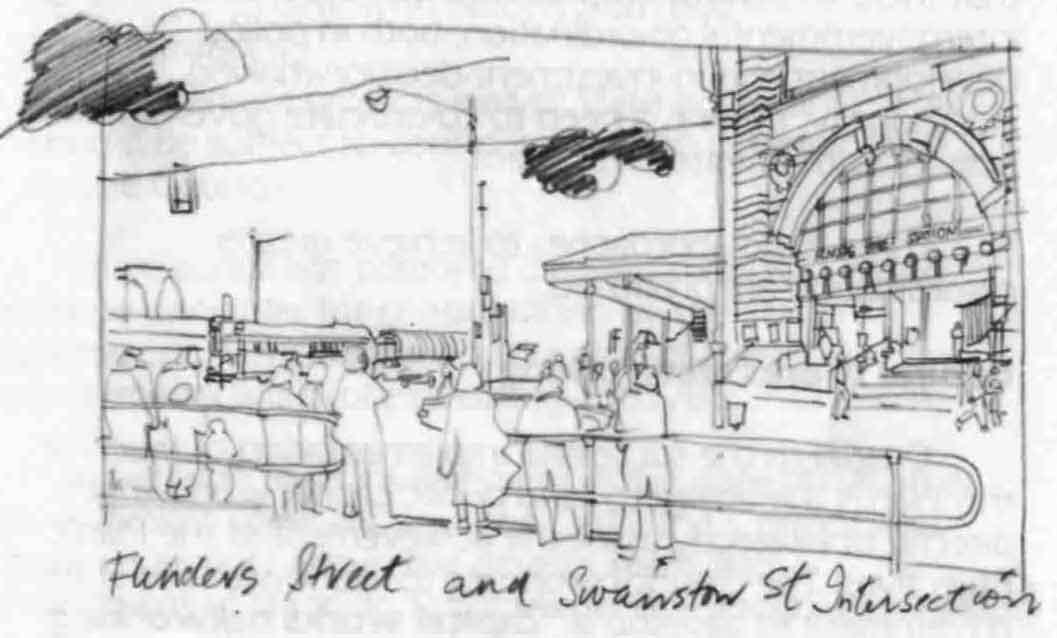 FLINDERS STREET STATION
Flinders Street and Swanston St Intersection